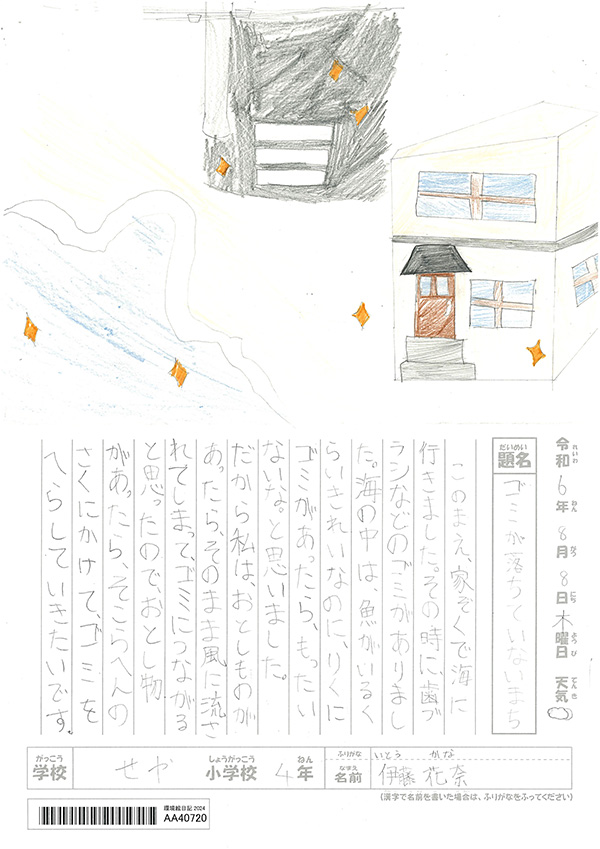 令和6年8月8日木曜日 天気
れいわ ねん がつ にち ようび てんき
だいめい
題名 ゴミが落ちていないまち
このまえ、家ぞくで海に
行きました。その時に、歯ブ
ラシなどのゴミがありまし
た。海の中は、魚がいるく
らいきれいなのに、りくに
ゴミがあったら、もったい
ないな。と思いました。
だから私は、おとしものが
あったら、そのまま風に流さ
れてしまって、ゴミにつながる
と思ったので、おとし物
があったら、そこらへんの
さくにかけて、ゴミを
へらしていきたいです。
がっこう しょうがっこう ねん
学校 せや 小学校 4年
ふりがな いとう かな
なまえ
名前 伊藤 花奈
(漢字で名前を書いた場合は、ふりがなをふってください)
環境絵日記2024
AA40720